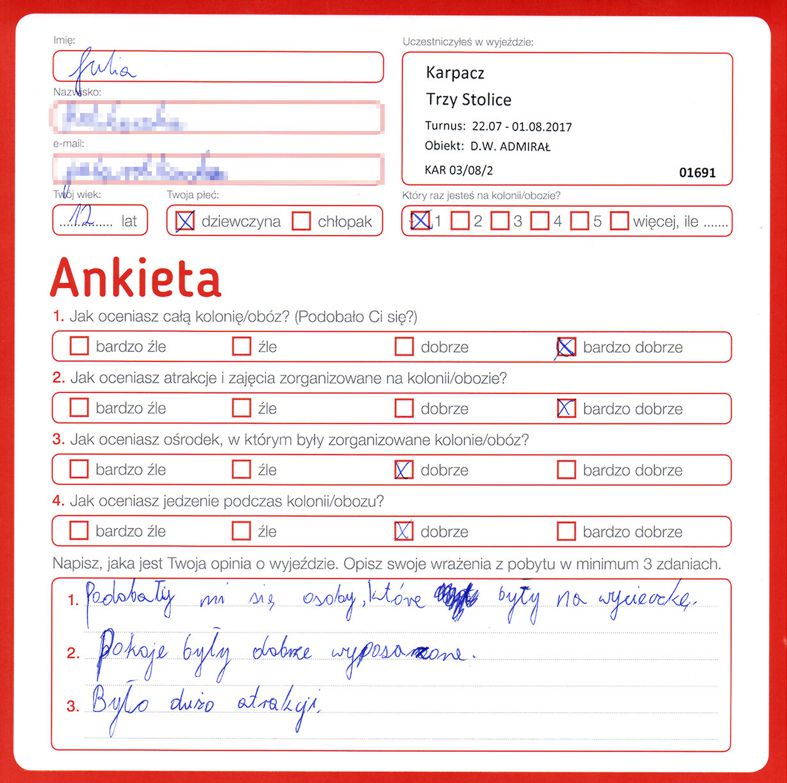 Imię:
Julia
Nazwisko:
e-mail:
Twój wiek:
12 lat
Twoja płeć:
dziewczyna chłopak
Uczestniczyłeś w wyjeździe:
Karpacz
Trzy Stolice
Turnus: 22.07 - 01.08.2017
Obiekt: D.W. ADMIRAŁ
KAR 03/08/2 01691
Który raz jesteś na kolonii/obozie?
1 2 3 4 5 więcej, ile .......
Ankieta
1. Jak oceniasz całą kolonię/obóz? (Podobało Ci się?)
bardzo źle źle dobrze bardzo dobrze
2. Jak oceniasz atrakcje i zajęcia zorganizowane na kolonii/obozie?
bardzo źle źle dobrze bardzo dobrze
3. Jak oceniasz ośrodek, w którym były zorganizowane kolonie/obóz?
bardzo źle źle dobrze bardzo dobrze
4. Jak oceniasz jedzenie podczas kolonii/obozu?
bardzo źle źle dobrze bardzo dobrze
Napisz, jaka jest Twoja opinia o wyjeździe. Opisz swoje wrażenia z pobytu w minimum 3 zdaniach.
1. Podobały mi się osoby, które były na wycieczkę.
2. Pokoje były dobrze wyposarzone.
3. Było dużo atrakcji.